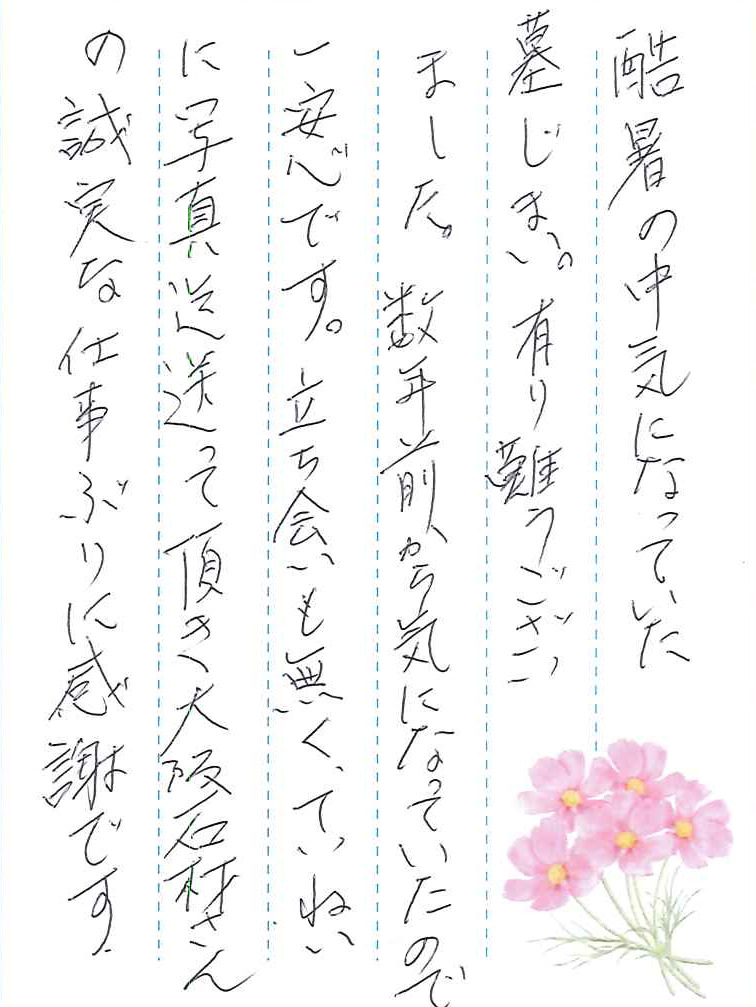 酷暑の中気になっていた
墓じまい。有り難うござい
ました。数年前から気になっていたので
一安心です。立ち会いも無く、ていねい
に写真迄送って頂き大阪石材さん
の誠実な仕事ぶりに感謝です.